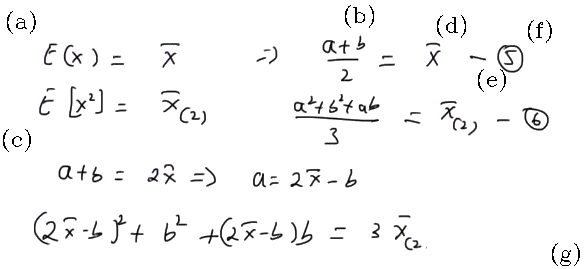 (a) (b) (d) (f)
E(x) = x̄ => (a+b)/2 = x̄ - ⑤
(e)
E[x²] = x̄(2) (a²+b²+ab)/3 = x̄(2) - ⑥
(c)
a+b = 2x̄ => a = 2x̄ - b
(2x̄-b)² + b² + (2x̄-b)b = 3 x̄(2.
(g)